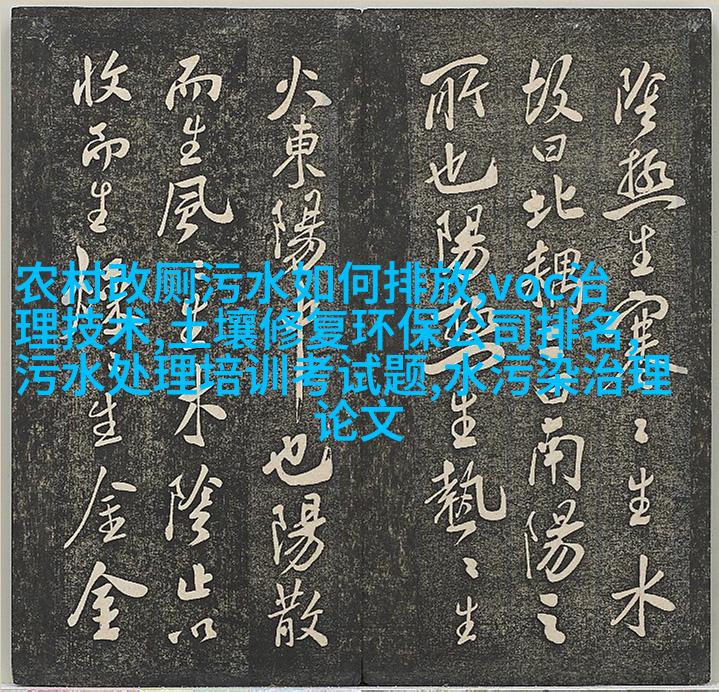 陰極生寒〻生水
故曰北耦南陽之
所也陽極生熱〻生
火東陽也陽散
而生風〻生木陰止以
收而生燥〻生金金
农村改厕污水如何排放,voc治
理技术,土壤修复环保公司排名,
污水处理培训考试题,水污染治理
论文